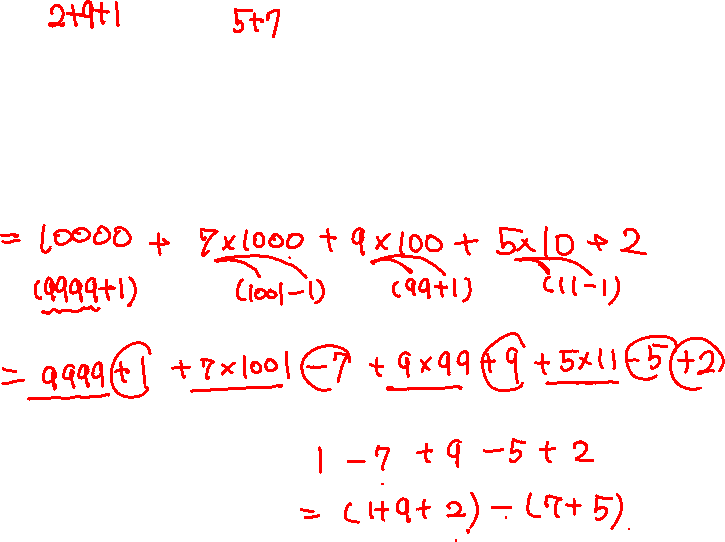 2+9+1 5+7
= 10000 + 7×1000 + 9×100 + 5×10 + 2
(9999+1) (1001-1) (99+1) (11-1)
= 9999+1 +7×1001 -7 +9×99 +9 +5×11 -5 +2
1 -7 +9 -5 +2
= (1+9+2) - (7+5)